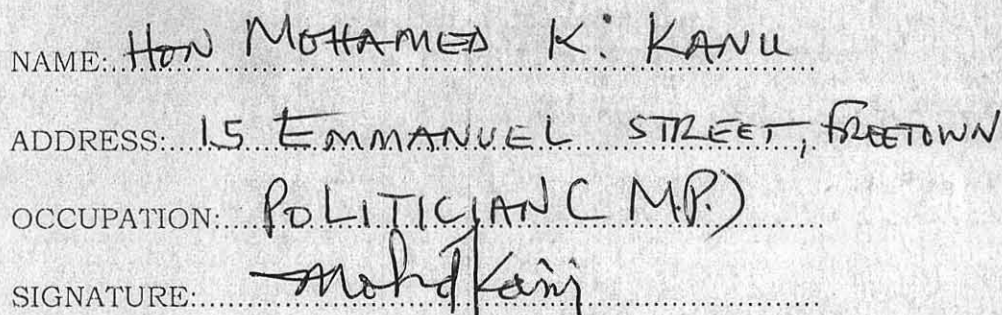 NAME: HON MOHAMED K. KANU
ADDRESS: 15 EMMANUEL STREET, FREETOWN
OCCUPATION: POLITICIAN (M.P.)
SIGNATURE: Mohd Kanu